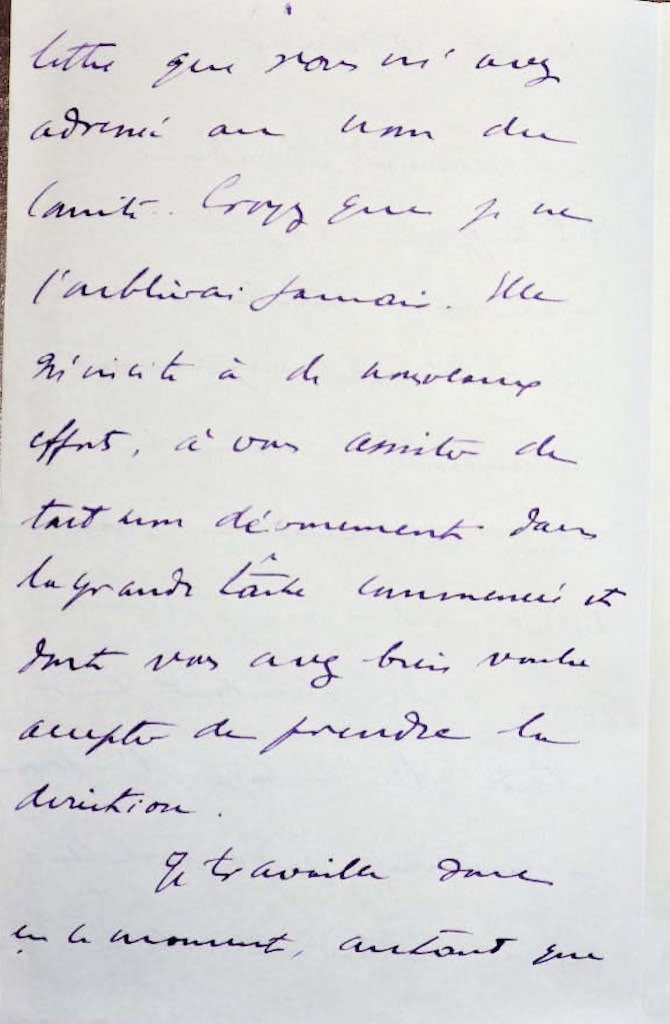 lettre que vous m'avez
adressée au nom du
Comité. Croyez que je ne
l'oublierai jamais. Elle
m'incite à de nouveaux
efforts, à vous assister de
tout mon dévouement dans
la grande tâche commencée et
dont vous avez bien voulu
accepter de prendre la
direction.
Je travaille donc
en ce moment, autant que